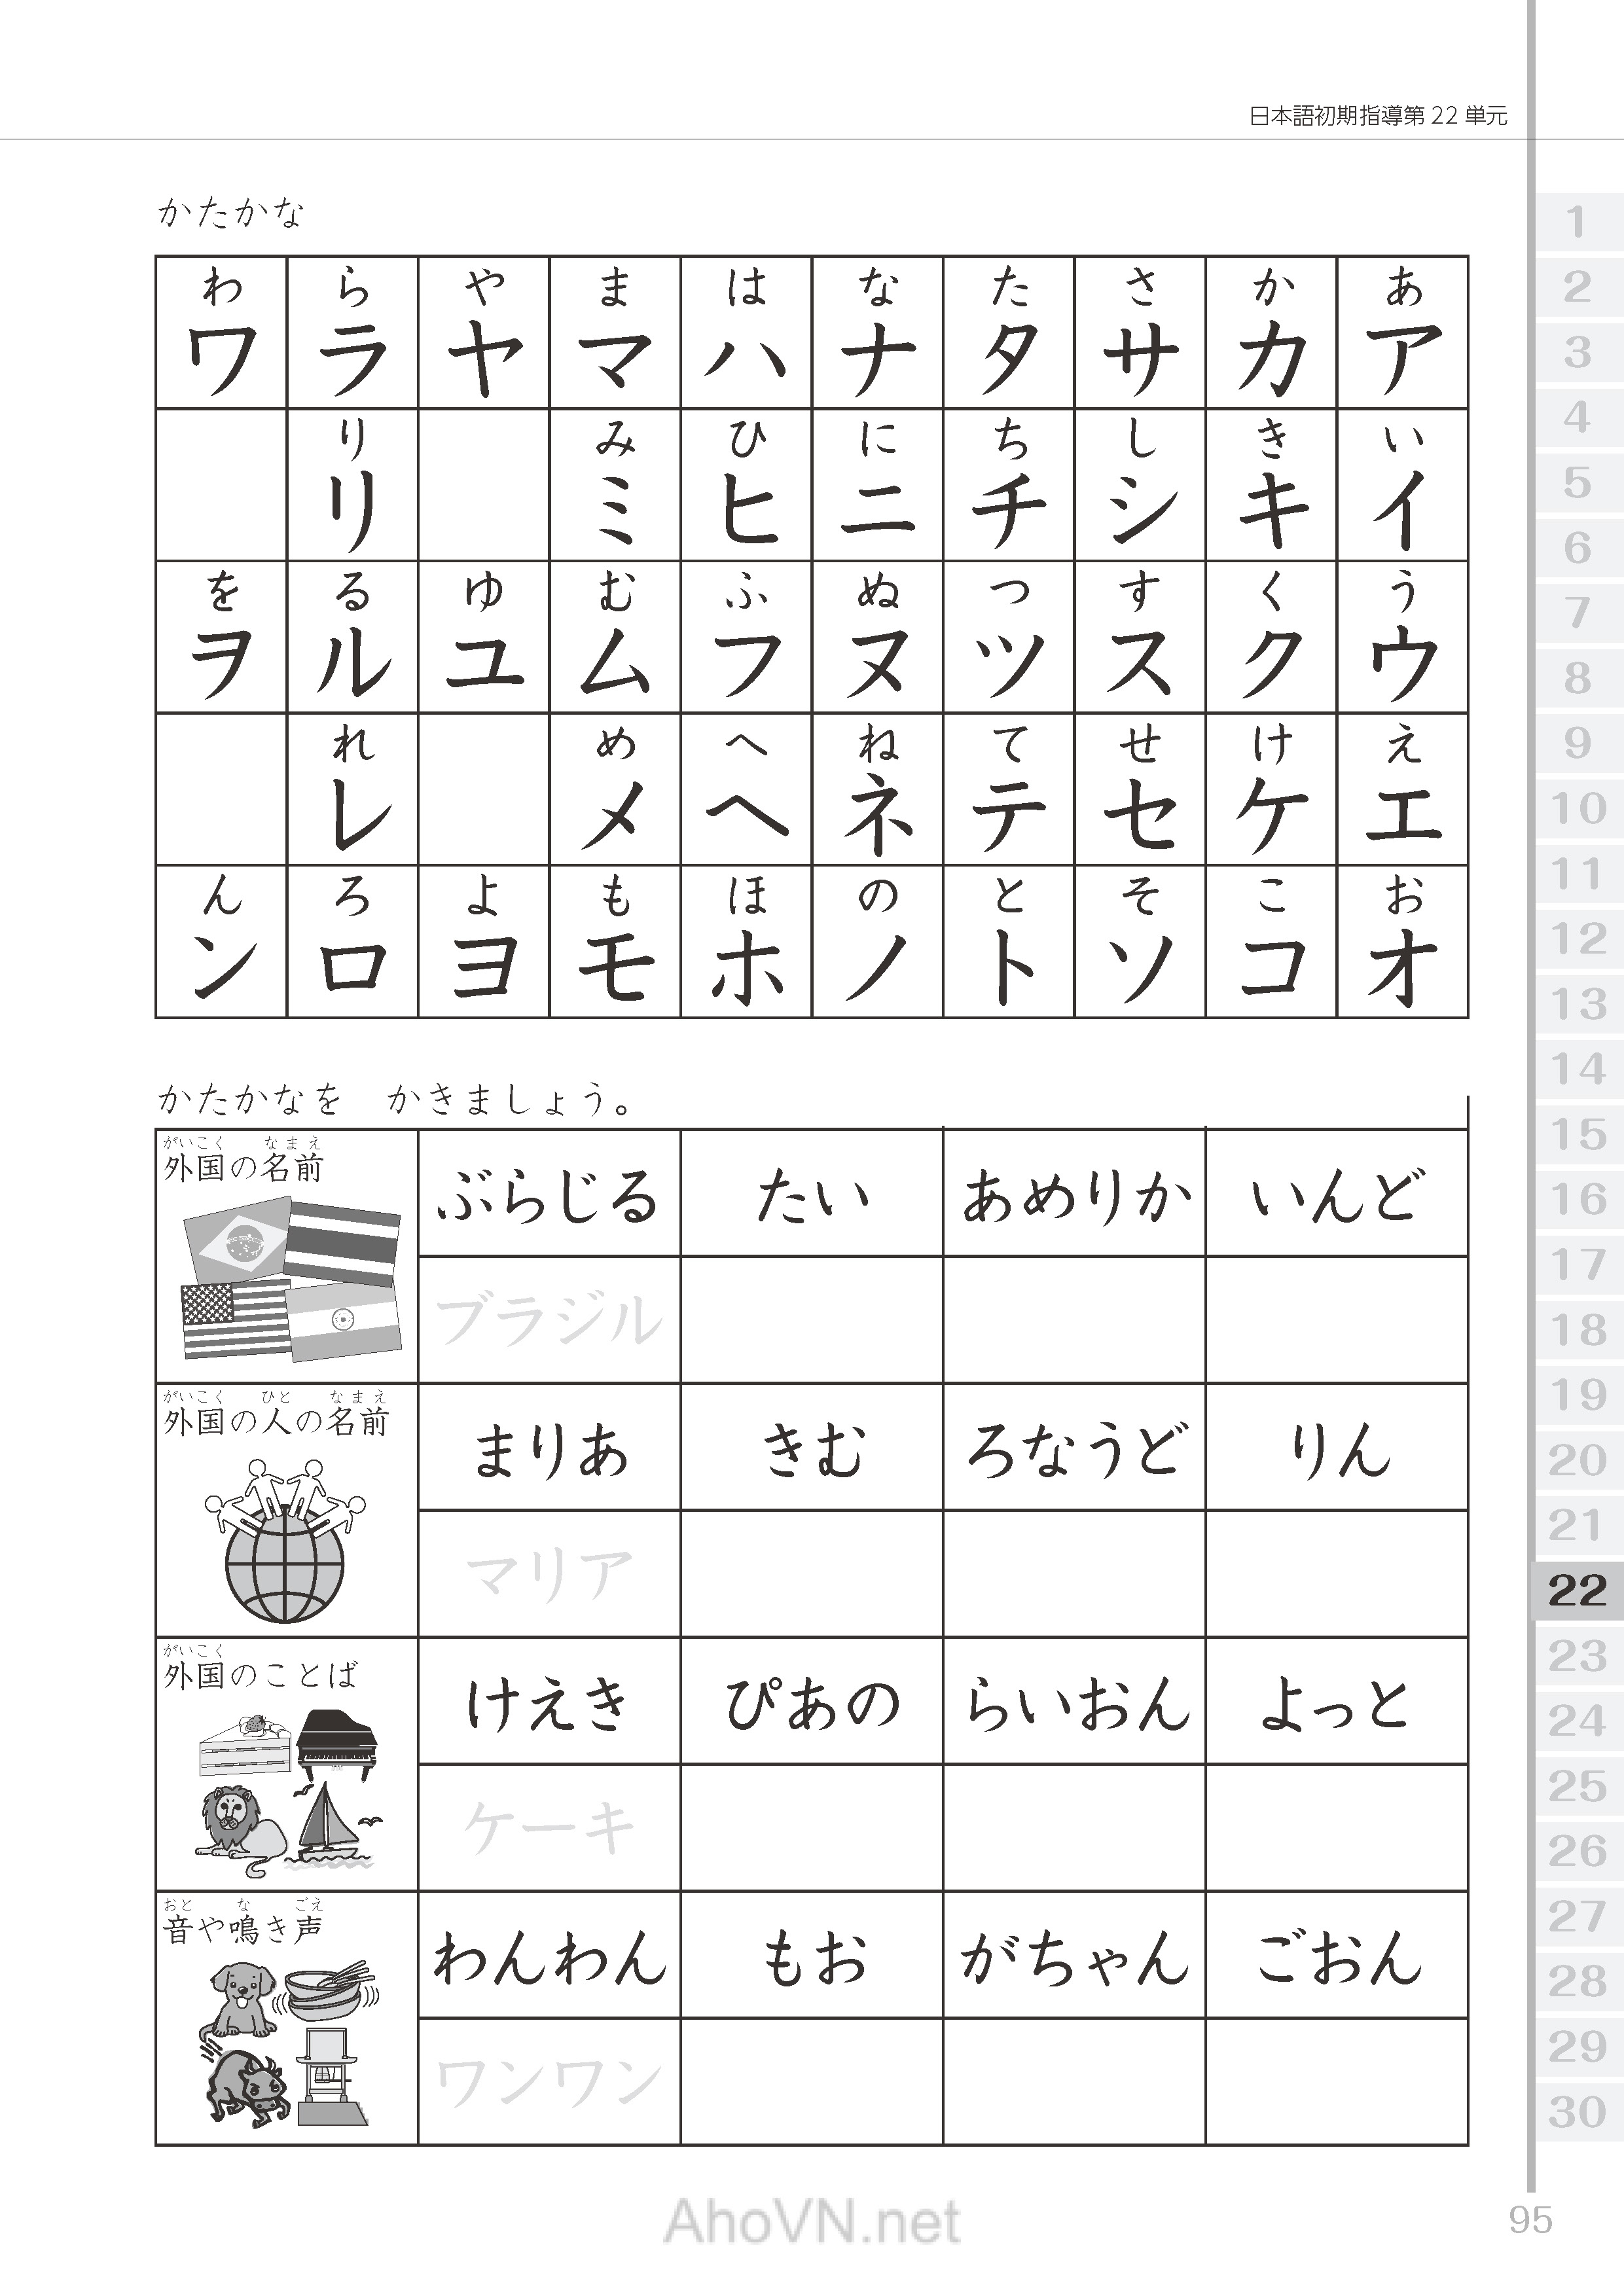 日本語初期指導第 22 単元
かたかな
わ ら や ま は な た さ か あ
ワ ラ ヤ マ ハ ナ タ サ カ ア
り み ひ に ち し き い
リ ミ ヒ ニ チ シ キ イ
を る ゆ む ふ ぬ つ す く う
ヲ ル ユ ム フ ヌ ツ ス ク ウ
れ め へ ね て せ け え
レ メ ヘ ネ テ セ ケ エ
ん ろ よ も ほ の と そ こ お
ン ロ ヨ モ ホ ノ ト ソ コ オ
かたかなを かきましょう。
がいこく なまえ
外国の名前
ぶらじる たい あめりか いんど
ブラジル
がいこく ひと なまえ
外国の人の名前
まりあ きむ ろなうど りん
マリア
がいこく
外国のことば
けえき ぴあの らいおん よっと
ケーキ
おと な ごえ
音や鳴き声
わんわん もお がちゃん ごおん
ワンワン
1
2
3
4
5
6
7
8
9
10
11
12
13
14
15
16
17
18
19
20
21
22
23
24
25
26
27
28
29
30
AhoVN.net
95